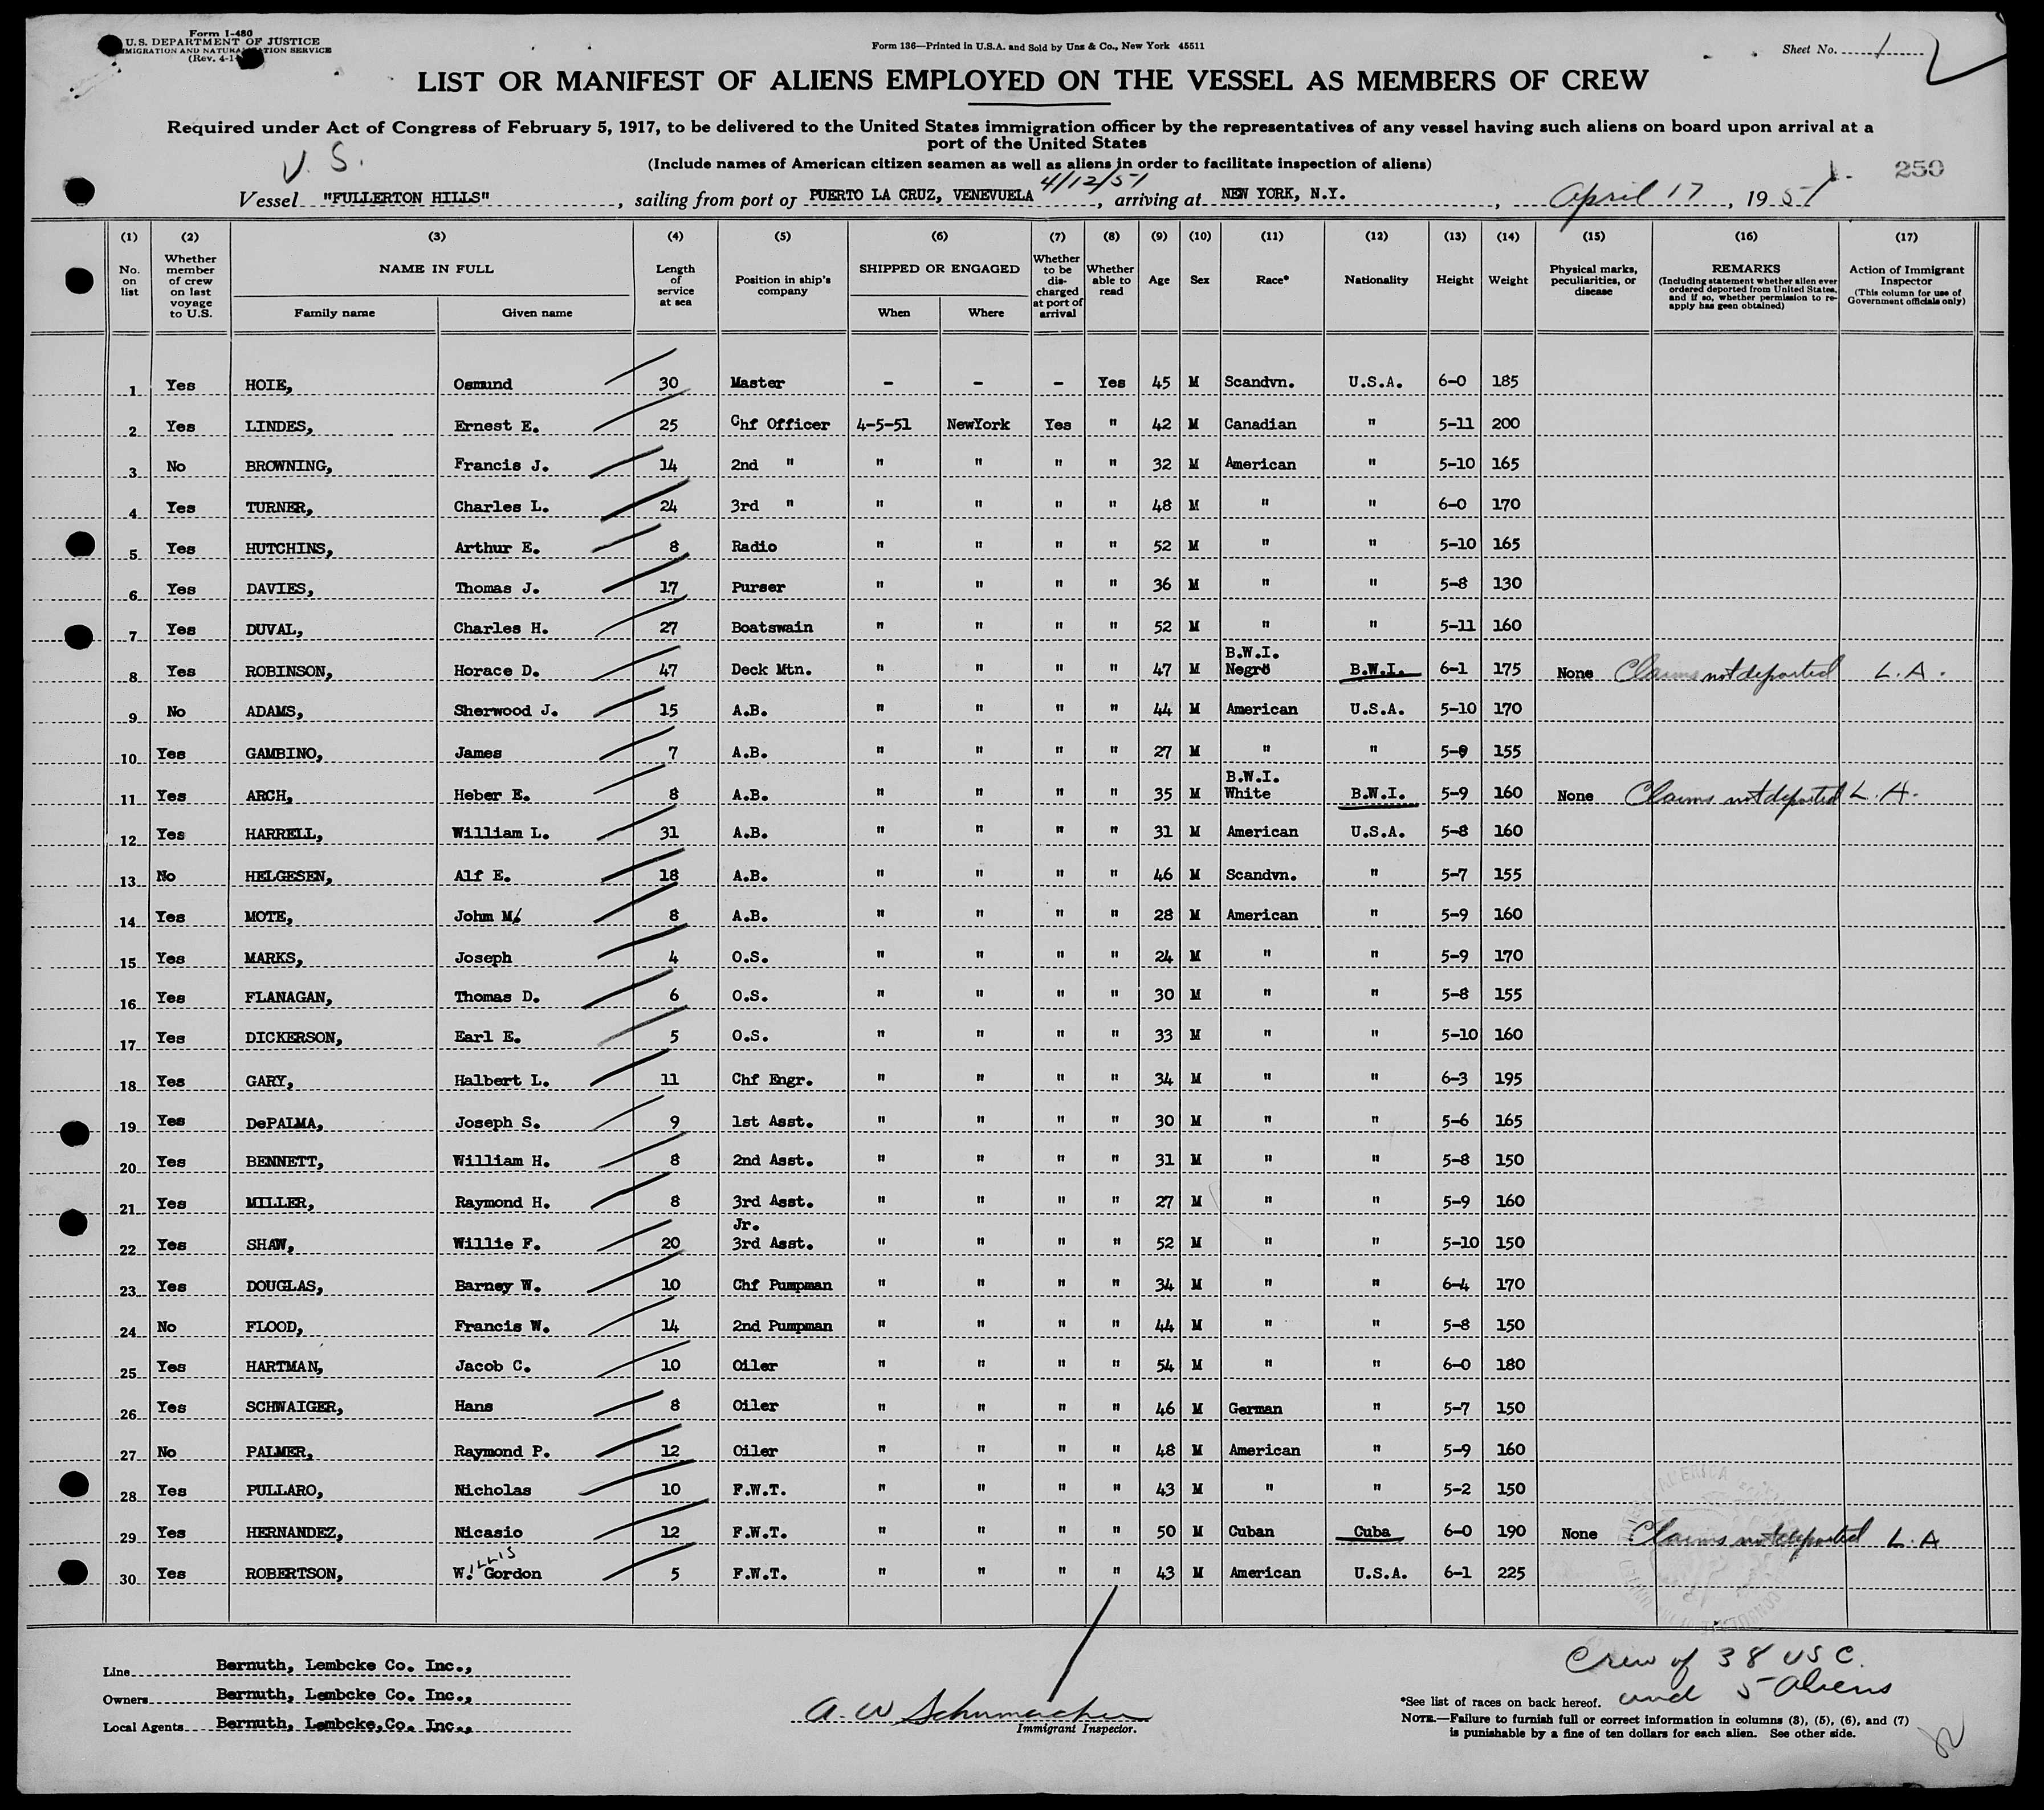 Form I-480
U.S. DEPARTMENT OF JUSTICE
IMMIGRATION AND NATURALIZATION SERVICE
(Rev. 4-1-
Form 136—Printed in U.S.A. and Sold by Unz & Co., New York 45511
Sheet No. 1
LIST OR MANIFEST OF ALIENS EMPLOYED ON THE VESSEL AS MEMBERS OF CREW
Required under Act of Congress of February 5, 1917, to be delivered to the United States immigration officer by the representatives of any vessel having such aliens on board upon arrival at a
port of the United States
(Include names of American citizen seamen as well as aliens in order to facilitate inspection of aliens)
U.S.
4/12/51
250
Vessel "FULLERTON HILLS", sailing from port of PUERTO LA CRUZ, VENEVUELA, arriving at NEW YORK, N.Y., April 17, 1951
(1) (2) (3) (4) (5) (6) (7) (8) (9) (10) (11) (12) (13) (14) (15) (16) (17)
No. on list
Whether member of crew on last voyage to U.S.
NAME IN FULL
Family name
Given name
Length of service at sea
Position in ship's company
SHIPPED OR ENGAGED
When
Where
Whether to be discharged at port of arrival
Whether able to read
Age
Sex
Race*
Nationality
Height
Weight
Physical marks, peculiarities, or disease
REMARKS
(Including statement whether alien ever ordered deported from United States, and if so, whether permission to re-apply has geen obtained)
Action of Immigrant Inspector
(This column for use of Government officials only)
1 Yes HOIE, Osmund 30 Master - - - Yes 45 M Scandvn. U.S.A. 6-0 185
2 Yes LINDES, Ernest E. 25 Chf Officer 4-5-51 NewYork Yes " 42 M Canadian " 5-11 200
3 No BROWNING, Francis J. 14 2nd " " " " " 32 M American " 5-10 165
4 Yes TURNER, Charles L. 24 3rd " " " " " 48 M " " 6-0 170
5 Yes HUTCHINS, Arthur E. 8 Radio " " " " 52 M " " 5-10 165
6 Yes DAVIES, Thomas J. 17 Purser " " " " 36 M " " 5-8 130
7 Yes DUVAL, Charles H. 27 Boatswain " " " " 52 M " " 5-11 160
8 Yes ROBINSON, Horace D. 47 Deck Mtn. " " " " 47 M B.W.I. Negro B.W.I. 6-1 175 None Claims not deported L.A.
9 No ADAMS, Sherwood J. 15 A.B. " " " " 44 M American U.S.A. 5-10 170
10 Yes GAMBINO, James 7 A.B. " " " " 27 M " " 5-9 155
11 Yes ARCH, Heber E. 8 A.B. " " " " 35 M B.W.I. White B.W.I. 5-9 160 None Claims not deported L.A.
12 Yes HARRELL, William L. 31 A.B. " " " " 31 M American U.S.A. 5-8 160
13 No HELGESEN, Alf E. 18 A.B. " " " " 46 M Scandvn. " 5-7 155
14 Yes MOTE, Johm M. 8 A.B. " " " " 28 M American " 5-9 160
15 Yes MARKS, Joseph 4 O.S. " " " " 24 M " " 5-9 170
16 Yes FLANAGAN, Thomas D. 6 O.S. " " " " 30 M " " 5-8 155
17 Yes DICKERSON, Earl E. 5 O.S. " " " " 33 M " " 5-10 160
18 Yes GARY, Halbert L. 11 Chf Engr. " " " " 34 M " " 6-3 195
19 Yes DePALMA, Joseph S. 9 1st Asst. " " " " 30 M " " 5-6 165
20 Yes BENNETT, William H. 8 2nd Asst. " " " " 31 M " " 5-8 150
21 Yes MILLER, Raymond H. 8 3rd Asst. " " " " 27 M " " 5-9 160
22 Yes SHAW, Willie F. 20 Jr. 3rd Asst. " " " " 52 M " " 5-10 150
23 Yes DOUGLAS, Barney W. 10 Chf Pumpman " " " " 34 M " " 6-4 170
24 No FLOOD, Francis W. 14 2nd Pumpman " " " " 44 M " " 5-8 150
25 Yes HARTMAN, Jacob C. 10 Oiler " " " " 54 M " " 6-0 180
26 Yes SCHWAIGER, Hans 8 Oiler " " " " 46 M German " 5-7 150
27 No PALMER, Raymond P. 12 Oiler " " " " 48 M American " 5-9 160
28 Yes PULLARO, Nicholas 10 F.W.T. " " " " 43 M " " 5-2 150
29 Yes HERNANDEZ, Nicasio 12 F.W.T. " " " " 50 M Cuban Cuba 6-0 190 None Claims not deported L.A
30 Yes ROBERTSON, W. ILLIS Gordon 5 F.W.T. " " " " 43 M American U.S.A. 6-1 225
Line Bernuth, Lembcke Co. Inc.,
Owners Bernuth, Lembcke Co. Inc.,
Local Agents Bernuth, Lembcke, Co. Inc.,
A. W Schumacher
Immigrant Inspector.
Crew of 38 USC.
and 5 aliens
*See list of races on back hereof.
NOTE.—Failure to furnish full or correct information in columns (3), (5), (6), and (7)
is punishable by a fine of ten dollars for each alien. See other side.